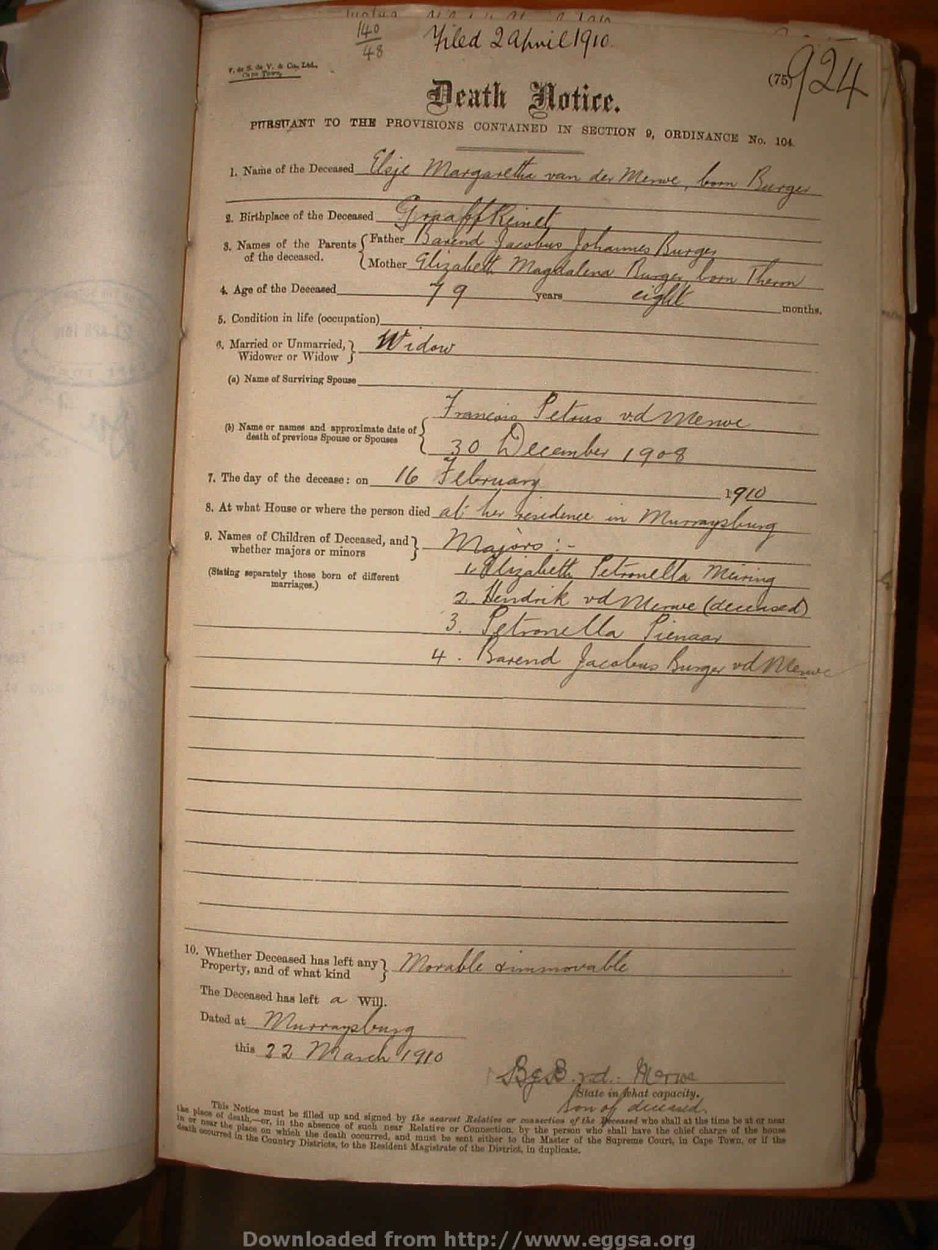 140
48
Filed 2 April 1910.
V. de S. de V. & Co., Ltd.,
Cape Town.
(75) 924
Death Notice.
PURSUANT TO THE PROVISIONS CONTAINED IN SECTION 9, ORDINANCE No. 104.
1. Name of the Deceased Elsje Margaretha van der Merwe, born Burger
2. Birthplace of the Deceased Graaff Reinet
3. Names of the Parents of the deceased. { Father Barend Jacobus Johannes Burger
Mother Elizabeth Magdalena Burger born Theron
4. Age of the Deceased 79 years eight months.
5. Condition in life (occupation)
6. Married or Unmarried, Widower or Widow } Widow
(a) Name of Surviving Spouse
(b) Name or names and approximate date of death of previous Spouse or Spouses { Francois Petrus vd Merwe
30 December 1908
7. The day of the decease: on 16 February 1910
8. At what House or where the person died at her residence in Murraysburg
9. Names of Children of Deceased, and whether majors or minors } Majors :-
(Stating separately those born of different marriages.)
1. Elizabeth Petronella Meiring
2. Hendrik vd Merwe (deceased)
3. Petronella Pienaar
4. Barend Jacobus Burger vd Merwe
10. Whether Deceased has left any Property, and of what kind } Movable & immovable
The Deceased has left a Will.
Dated at Murraysburg
this 22 March 1910
B J B. v.d. Merwe
State in what capacity.
Son of deceased.
This Notice must be filled up and signed by the nearest Relative or connection of the Deceased who shall at the time be at or near
the place of death,—or, in the absence of such near Relative or Connection, by the person who shall have the chief charge of the house
in or near the place on which the death occurred, and must be sent either to the Master of the Supreme Court, in Cape Town, or if the
death occurred in the Country Districts, to the Resident Magistrate of the District, in duplicate.
Downloaded from http://www.eggsa.org